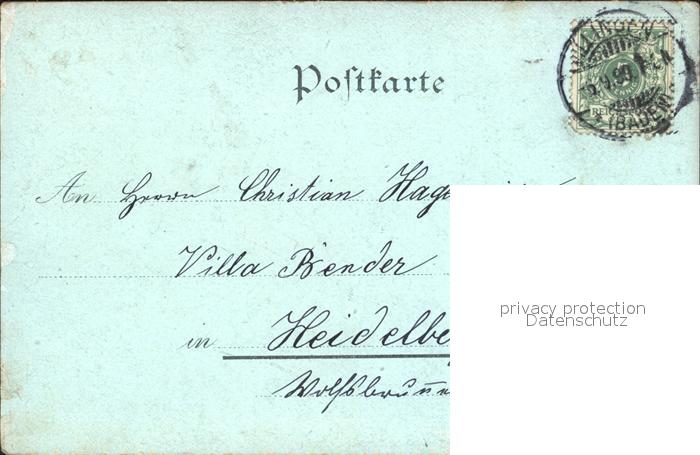 Postkarte
VILLINGEN
(BADEN)
An Herrn Christian Hage
Villa Bender
in Heidelbe
Wolfsbrunne
privacy protection
Datenschutz